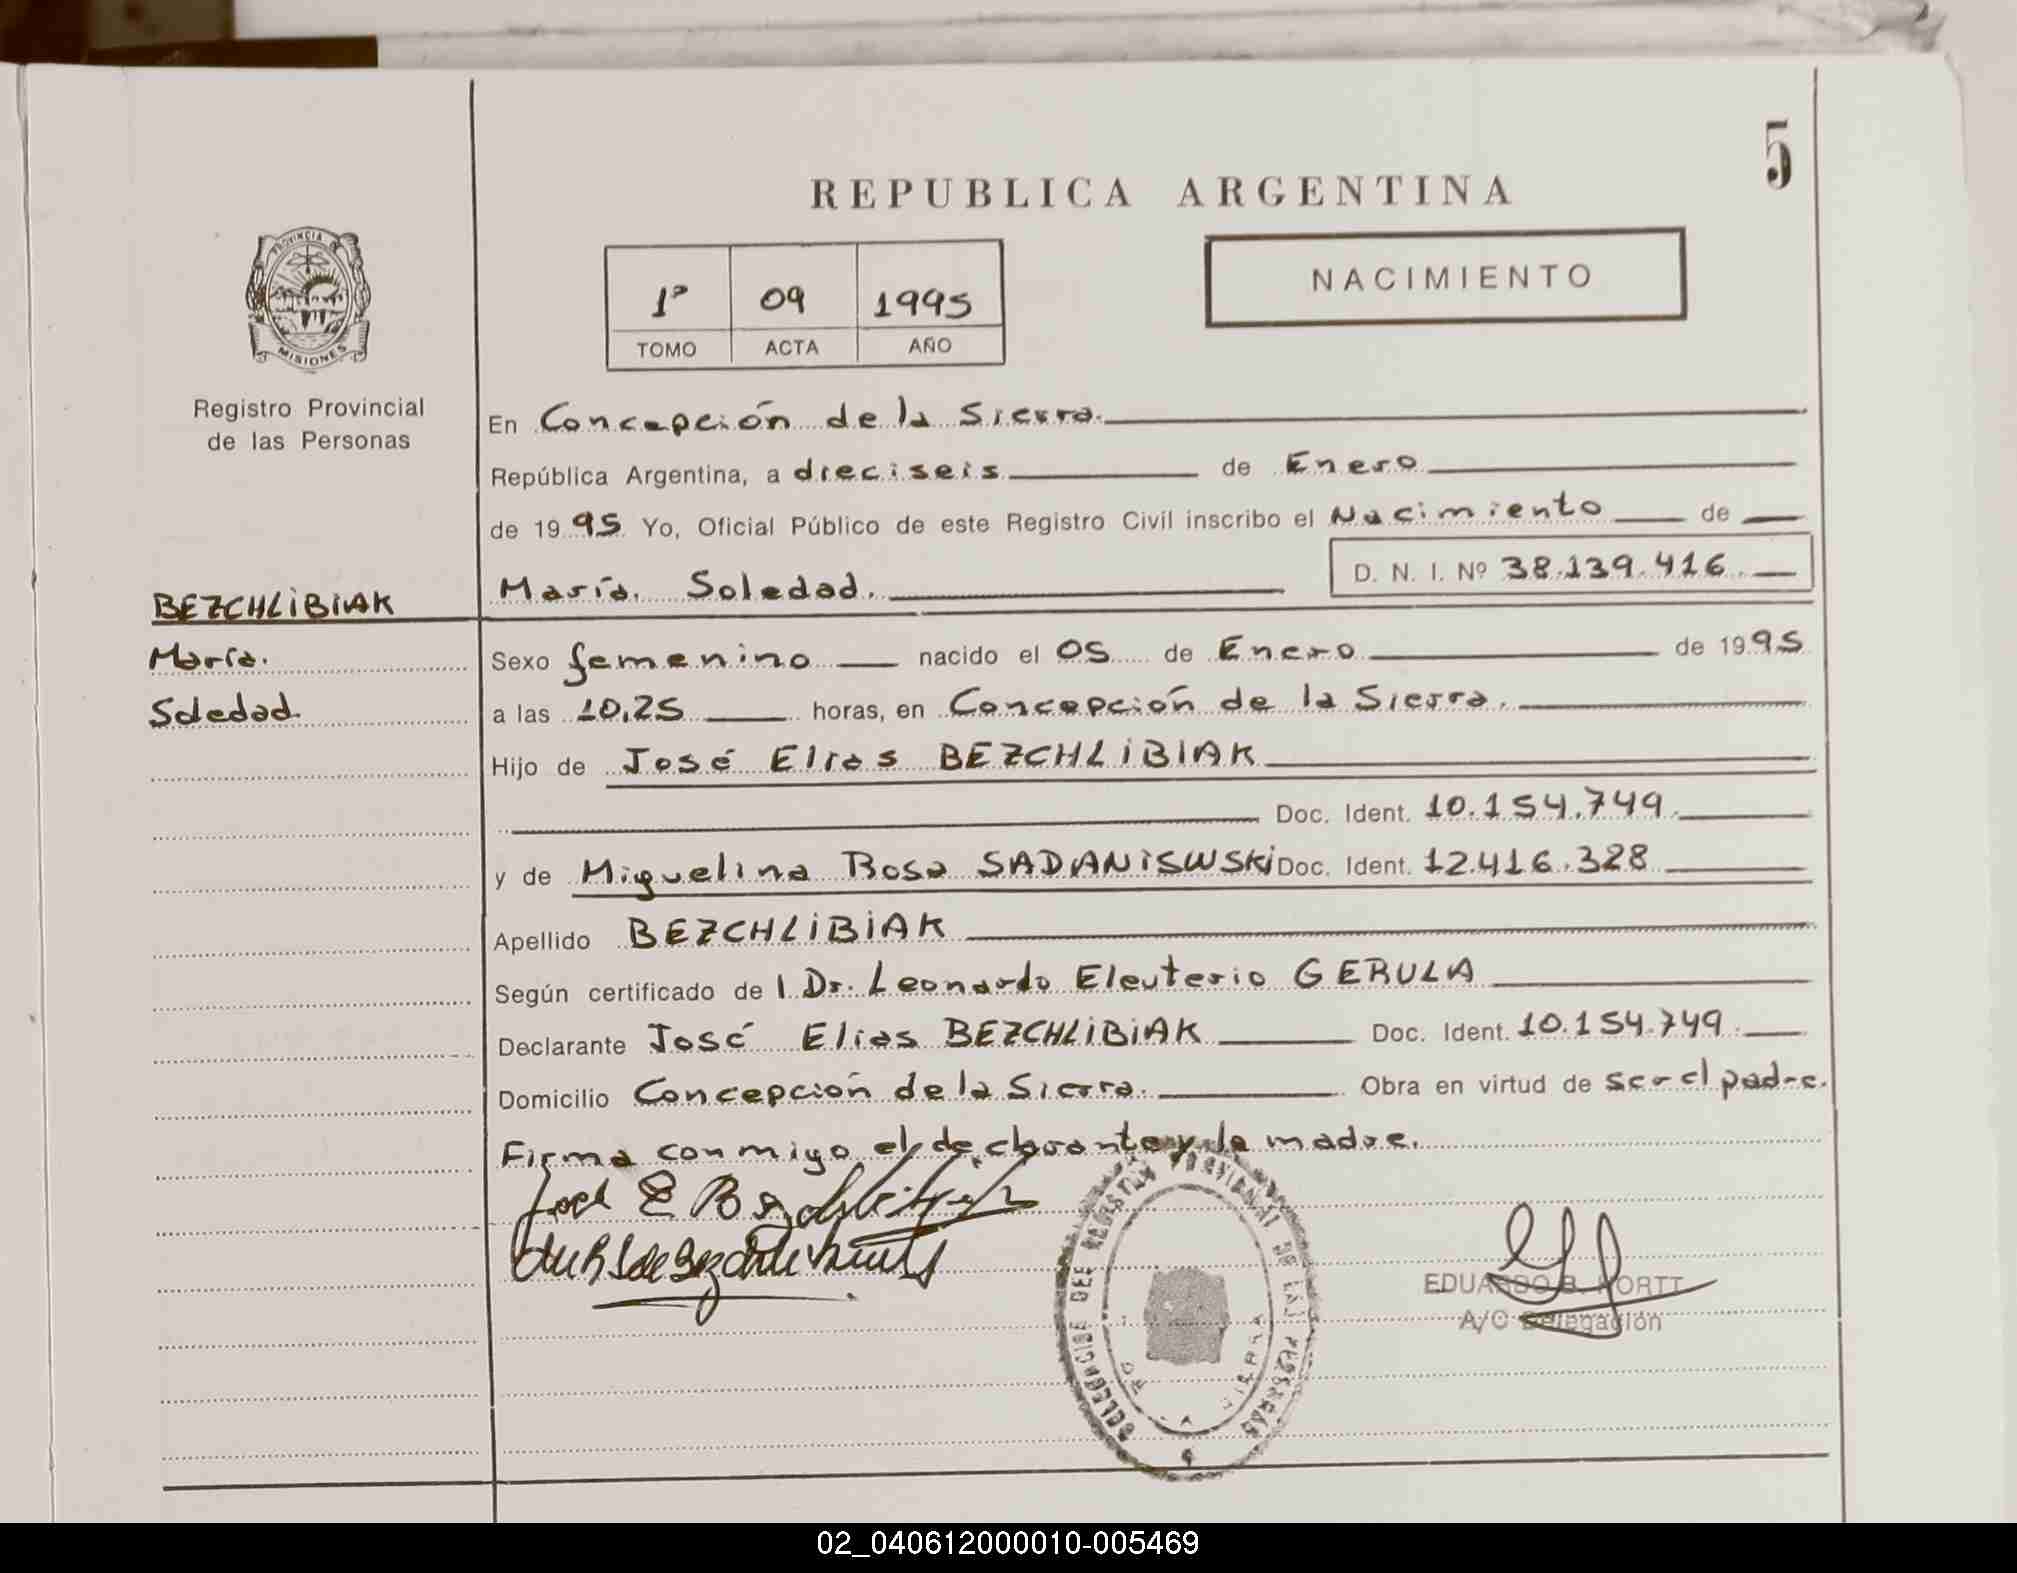 5
REPUBLICA ARGENTINA
PROVINCIA
MISIONES
Registro Provincial
de las Personas
1º 09 1995
TOMO ACTA AÑO
NACIMIENTO
En Concepción de la Sierra.
República Argentina, a dieciseis de Enero
de 1995 Yo, Oficial Público de este Registro Civil inscribo el Nacimiento de
María Soledad. D. N. I. Nº 38.139.416
BEZCHLiBiAK
María
Soledad
Sexo femenino nacido el 05 de Enero de 1995
a las 10,25 horas, en Concepción de la Sierra.
Hijo de José Elias BEZCHLiBiAK
Doc. Ident. 10.154.749
y de Miguelina Rosa SADANiSWSKi Doc. Ident. 12.416.328
Apellido BEZCHLiBiAK
Según certificado de l Dr. Leonardo Eleuterio GERULA
Declarante José Elias BEZCHLiBiAK Doc. Ident. 10.154.749
Domicilio Concepción de la Sierra. Obra en virtud de ser el padre.
Firma conmigo el declarante y la madre.
DEL REGISTRO PROVINCIAL DE LAS PERSONAS
EDUARDO B. HORTT
A/C Delegación
02_040612000010-005469